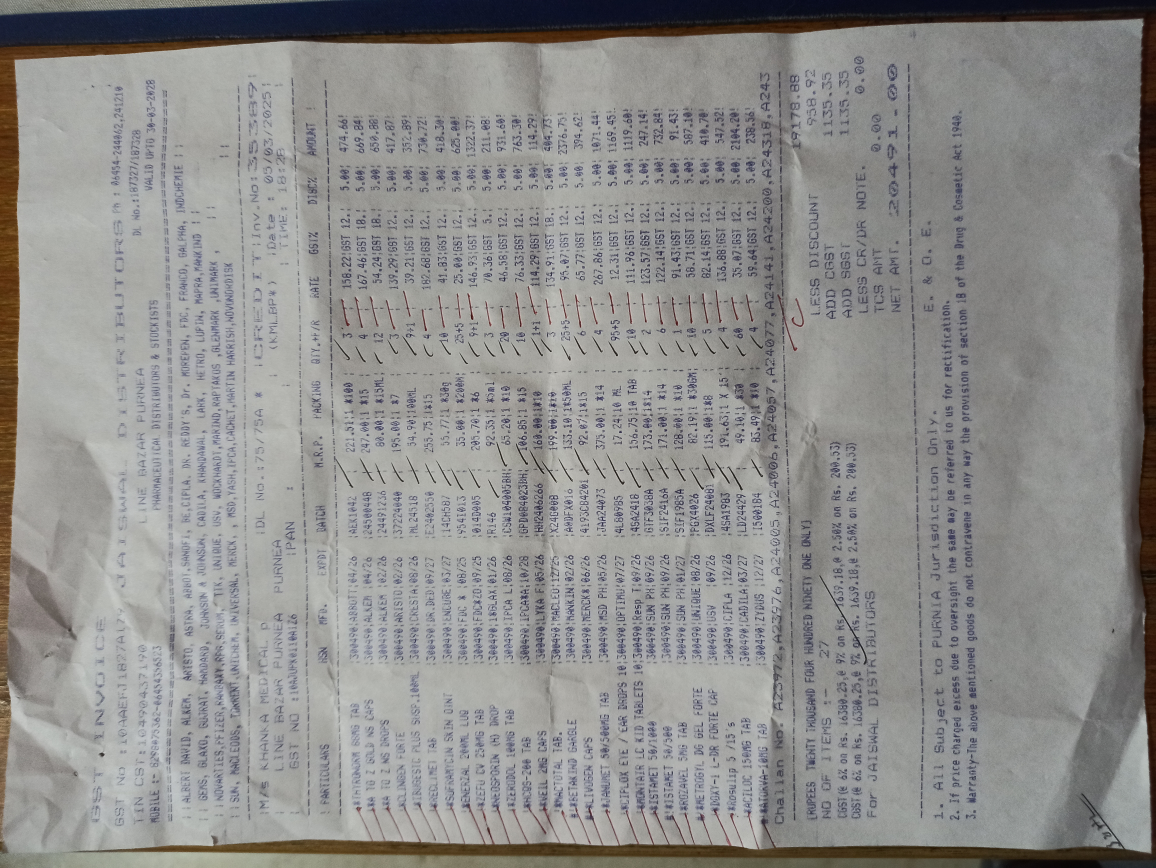 GST INVOICE
JAISWAL DISTRIBUTORS Ph : 06454-244062,241210
GST NO :10AEMJ1877A1ZV
LINE BAZAR PURNEA DL No.:187327/187328
TIN CST:10490437190
PHARMACEUTICAL DISTRIBUTORS & STOCKISTS VALID UPTO 30-03-2028
::ALBERT DAVID, ALKEM, ARISTO, ASTRA, ABBOT,SANOFI, BE,CIPLA, DR. REDDY'S, Dr. MOREPEN, FDC, FRANCO, GALPHA, INDCHEMIE ::
M/S KHANNA MEDICAL D :DL NO.:75/75A * :CREDIT::Inv.No:353389:
LINE BAZAR PURNEA (KLBP*) :Date : 05/03/2025:
GST NO :10AJUPK0110A1Z6 :PAN : : TIME: 18:28 :
: PARTICULARS HSN MFG. EXPDT BATCH M.R.P. PACKING QTY.+F/R RATE GST% DISC% AMOUNT !
TAB :300490:ABBOTT:04/26 :AEK1042 221.51:1 *100 3 158.22:GST 12.: 5.00: 474.66:
*A TO Z GOLD NS CAPS :300490:ALKEM :04/26 :24500448 247.00:1 *15 4 167.46:GST 18.: 5.00: 669.84:
*A TO Z NS DROPS :300490:ALKEM :02/26 :24491236 80.00:1 *15ML 12 54.24:GST 18.: 5.00: 650.88:
*CLINOGEN FORTE :300490:ARISTO:02/26 :37224040 195.00:1 *7 3 139.29:GST 12.: 5.00: 417.87:
PLUS SUSP.100ML :300490:CRESTA:08/26 :ML24518 54.90:100ML 9+1 39.21:GST 12.: 5.00: 352.89:
*RECLIMET TAB :300490:DR.DRED:09/27 :E2402550 255.75:1*15 4 182.68:GST 12.: 5.00: 730.72:
*SOFRAMYCIN SKIN OINT :300490:ENCUBE:03/27 :14CH587 55.77:1 *30g 10 41.83:GST 12.: 5.00: 418.30:
*ENERAL 200ML :300490:FDC * :08/25 :954I013 35.00:1 *200M 25+5 25.00:GST 12.: 5.00: 625.00:
*ZEFU CV 250MG TAB :300490:FDCZID:09/25 :014D005 205.70:1 *6 9+1 146.93:GST 12.: 5.00: 1322.37:
*NEOSPORIN (H) DROP :300490: :01/26 :R146 92.35:1 *5ml 3 70.36:GST 5.: 5.00: 211.08:
*ZERODOL 100MG TAB :300490:IPCA L:08/26 :CSW104005BH: 65.20:1 *10 20 46.58:GST 12.: 5.00: 931.60:
*HCQS-200 TAB :300490:IPCA*A:10/28 :GPD084023BH: 106.85:1 *15 10 76.33:GST 12.: 5.00: 763.30:
2MG CAPS :300490:LYKA F:05/26 :HH2406266 160.00:1*10 1+1 114.29:GST 12.: 5.00: 114.29:
TAB. :300490:MACLEO:12/25 :X24G008 199.00:1*10 3 134.91:GST 18.: 5.00: 404.73:
*BETAKIND GARGLE :300490:MANKIN:02/26 :A0DFX016 133.10:1*50ML 25+5 95.07:GST 12.: 5.00: 2376.75:
CAPS :300490:MERCK*:06/26 :4193C84201 92.07:1*15 6 65.77:GST 12.: 5.00: 394.62:
*JANUMET 50/500MG TAB :300490:MSD PH:05/26 :JAA24073 375.00:1 *14 4 267.86:GST 12.: 5.00: 1071.44:
*CIPLOX EYE / EAR DROPS 10:300490:OPTIMU:07/27 :4L80985 17.24:10 ML 95+5 12.31:GST 12.: 5.00: 1169.45:
*MONTAIR LC KID TABLETS 10:300490:Resp T:09/26 :4SA2418 156.75:10 TAB 10 111.96:GST 12.: 5.00: 1119.60:
*ISTAMET 50/1000 :300490:SUN PH:09/26 :GTF3038A 173.00:1*14 2 123.57:GST 12.: 5.00: 247.14:
*ISTAMET 50/500 :300490:SUN PH:09/26 :SIF2416A 171.00:1 *14 6 122.14:GST 12.: 5.00: 732.84:
*ROZAVEL 5MG TAB :300490:SUN PH:01/27 :SIF1985A 128.00:1 *10 1 91.43:GST 12.: 5.00: 91.43:
*METROGYL DG GEL FORTE :300490:UNIQUE:08/26 :PGY4026 82.19:1 *30GM: 10 58.71:GST 12.: 5.00: 587.10:
*DOXY-1 L-DR FORTE CAP :300490:USV :09/26 :DXLF24081 115.00:1*8 5 82.14:GST 12.: 5.00: 410.70:
*Rosulip 5 /15's :300490:CIPLA :12/26 :4SA1983 191.63:1 X 15 4 136.88:GST 12.: 5.00: 547.52:
*ACILOC 150MG TAB :300490:CADILA:03/27 :LD24429 49.10:1 *30 60 35.07:GST 12.: 5.00: 2104.20:
*ATORVA-10MG TAB :300490:ZYDUS :12/27 :I500184 83.49:1 *10 4 59.64:GST 12.: 5.00: 238.56:
Challan No. : A23972,A23976,A24005,A24006,A24057,A24077,A24141,A24200,A24318,A243
19178.88
(RUPEES TWENTY THOUSAND FOUR HUNDRED NINETY ONE ONLY) LESS DISCOUNT 958.92
NO OF ITEMS : 27 ADD CGST 1135.35
CGST(@ 6% on Rs. 16380.25,@ 9% on Rs. 1639.18,@ 2.50% on Rs. 200.53) ADD SGST 1135.35
SGST(@ 6% on Rs. 16380.25,@ 9% on Rs. 1639.18,@ 2.50% on Rs. 200.53) LESS CR/DR NOTE. 0.00
For JAISWAL DISTRIBUTORS TCS AMT 0.00
NET AMT. 20491.00
E. & O. E.
1. All Subject to PURNIA Jurisdiction Only.
2. If price charged excess due to oversight the same may be referred to us for rectification.
3. Warranty-The above mentioned goods do not contravene in any way the provision of section 18 of the Drug & Cosmetic Act 1940.